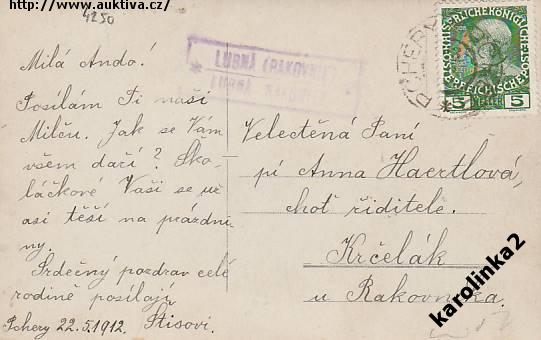 http://www.auktiva.cz/
4250
Milá Ando!
Posílám Ti naší
Milču. Jak se Vám
všem daří? Ško-
láčkové Vaši se už
asi těší na prázdni-
ny.
Srdečný pozdrav celé
rodině posílají
Pchery 22.5.1912. Štisovi.
LUBNÁ (RAKOVNÍK)
LUBNÁ
PCHERY
5 5
Velectěná Paní
pí Anna Haertlová,
choť řiditele.
Krčelák
u Rakovníka.
karolinka2